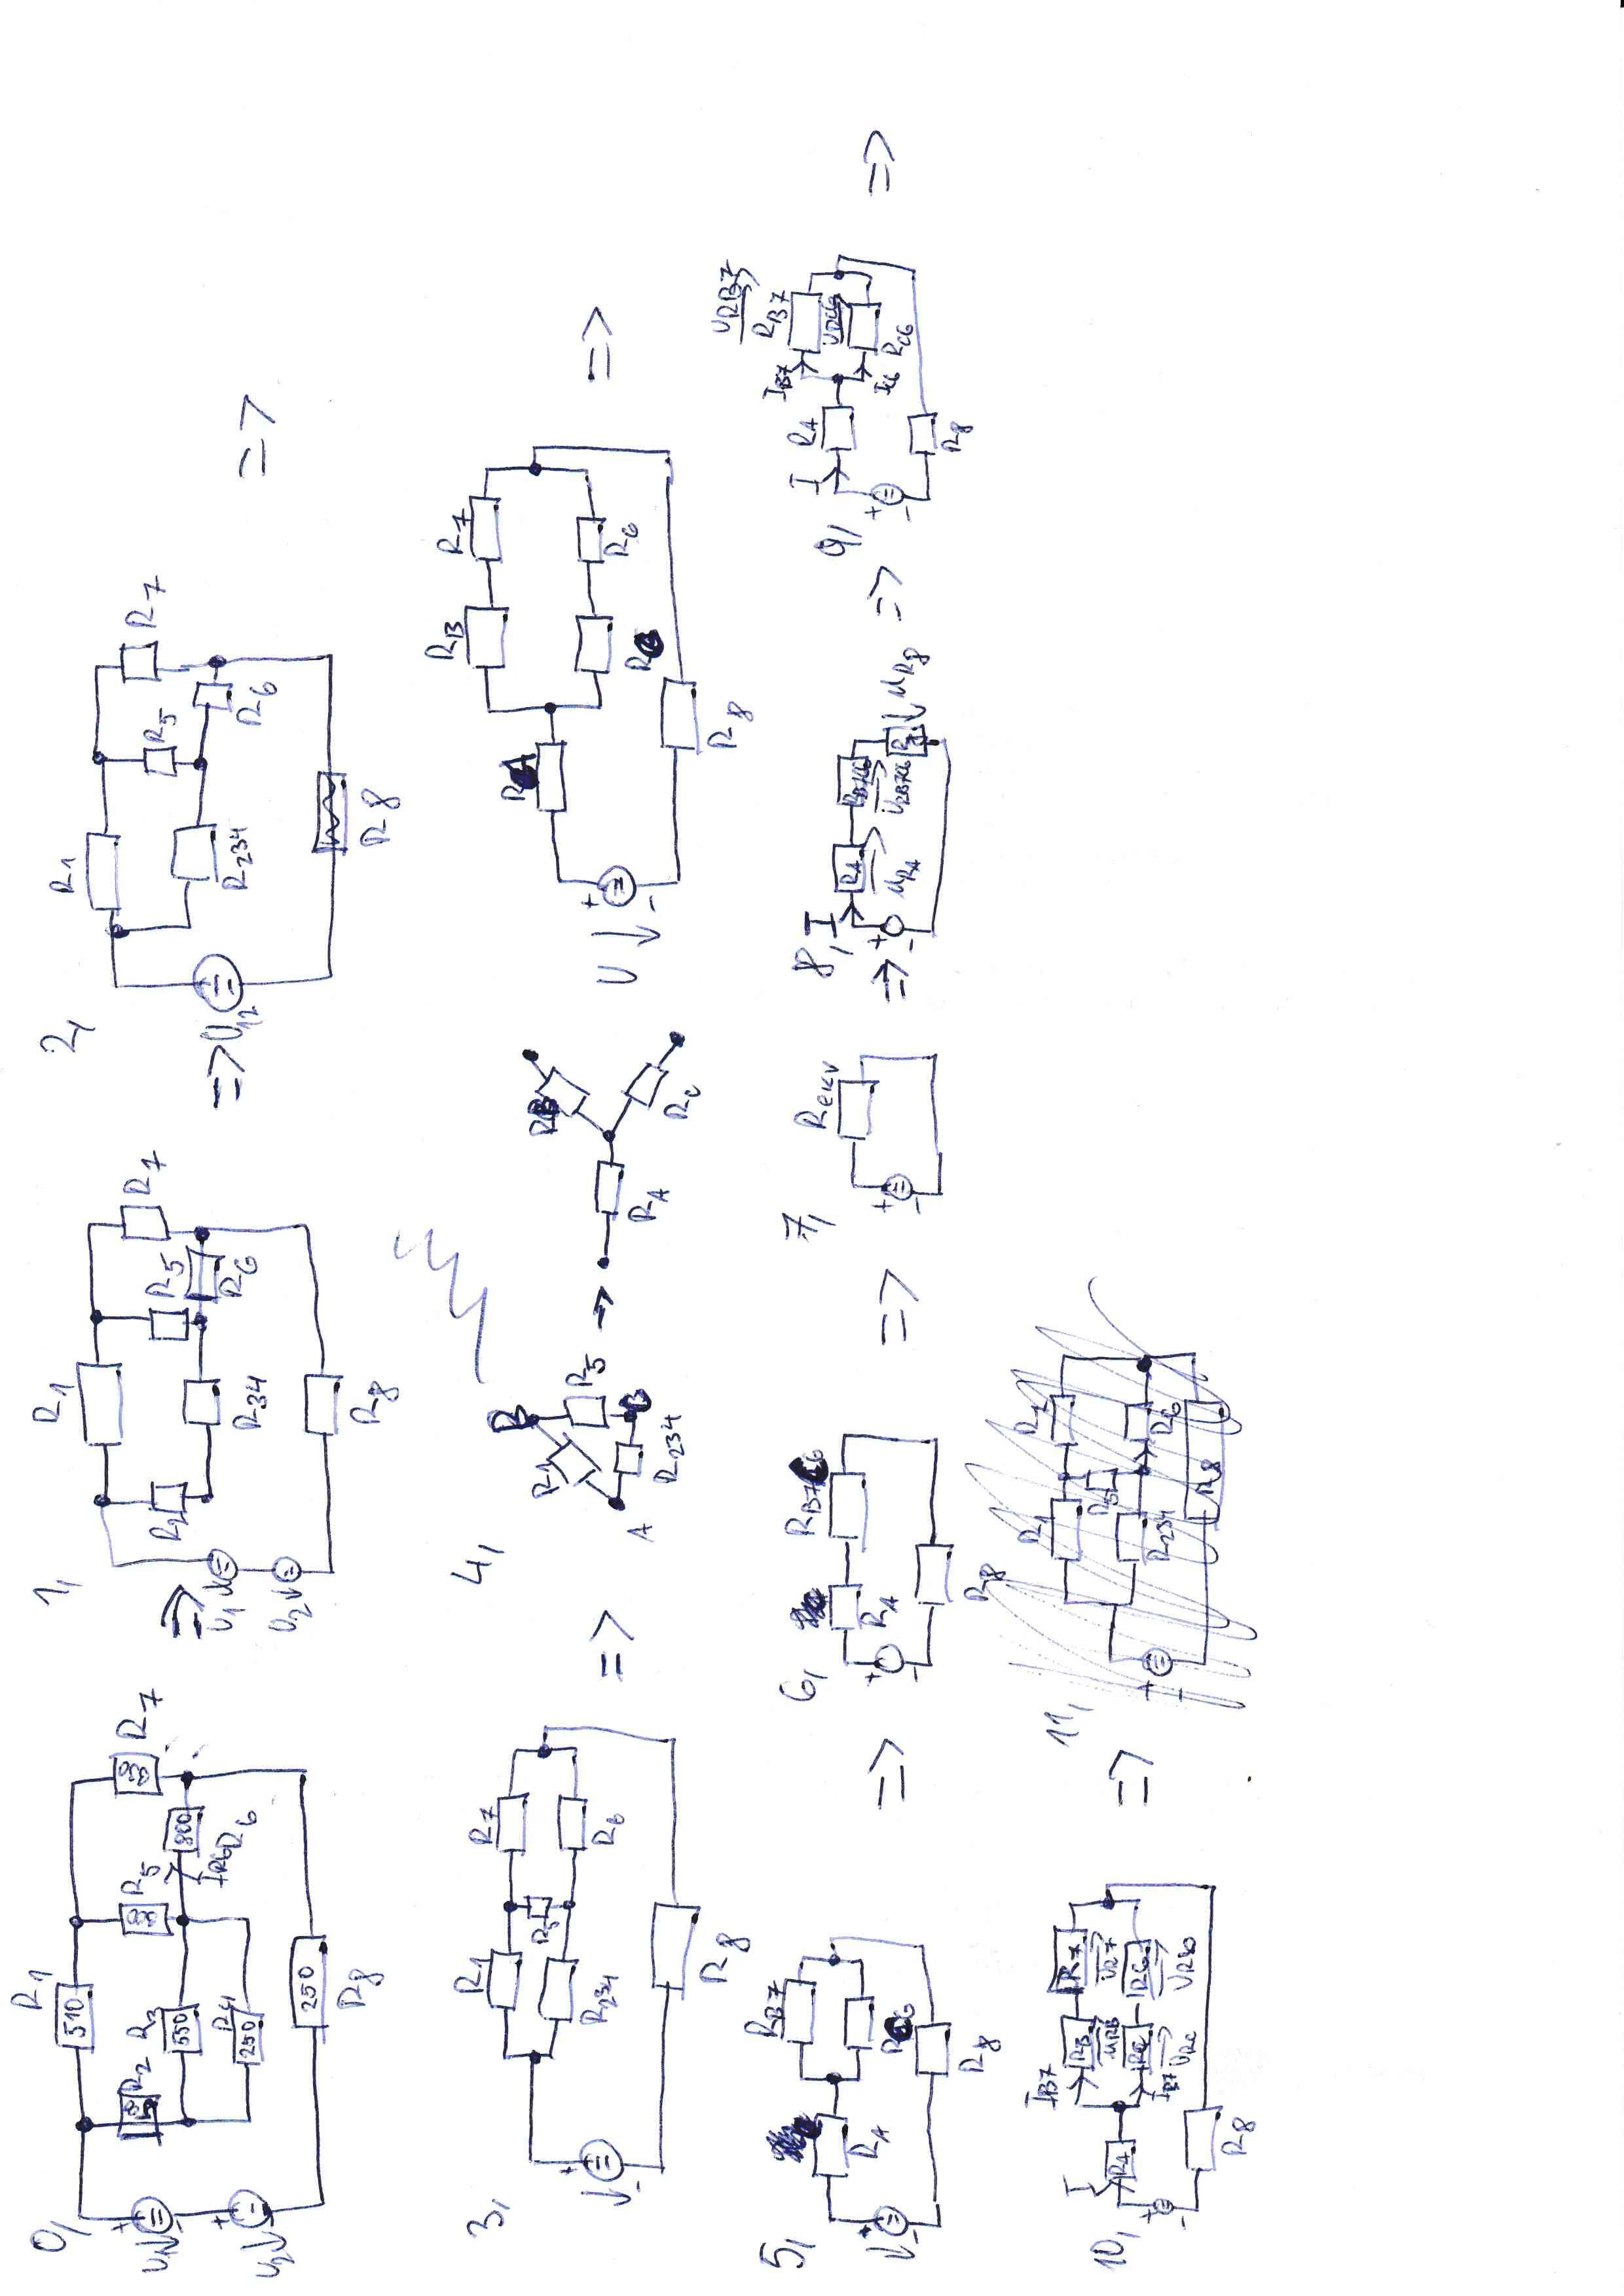 0,
R1
510
R2
R3
550
R4
250
R5
R6
800
IR6
R7
R8
250
U1
U2
+
-
+
=>
1,
R1
R2
R34
R5
R6
R7
R8
U1
U2
=>
2,
R1
R234
R5
R6
R7
R8
U12
=>
3,
R1
R234
R5
R7
R6
R8
+
-
=>
4,
A
B
R1
R5
R234
->
RA
RB
RC
U
+
-
RB
R7
R6
R8
=>
5,
RB7
RA
R8
+
-
=>
6,
RA
RB7C6
R8
+
-
=>
7,
Rekv
+
-
=>
8,
I
RA
URA
RB7C6
URB7C6
R8
UR8
+
-
=>
9,
I
RA
IB7
URB7
RB7
IC6
URC6
RC6
R8
+
-
=>
10,
I
RA
IB7
RB
URB
R7
UR7
IB7
RC
URC
R6
UR6
R8
+
-
=>
11,
R1
R234
R5
R7
R6
R8
+
-